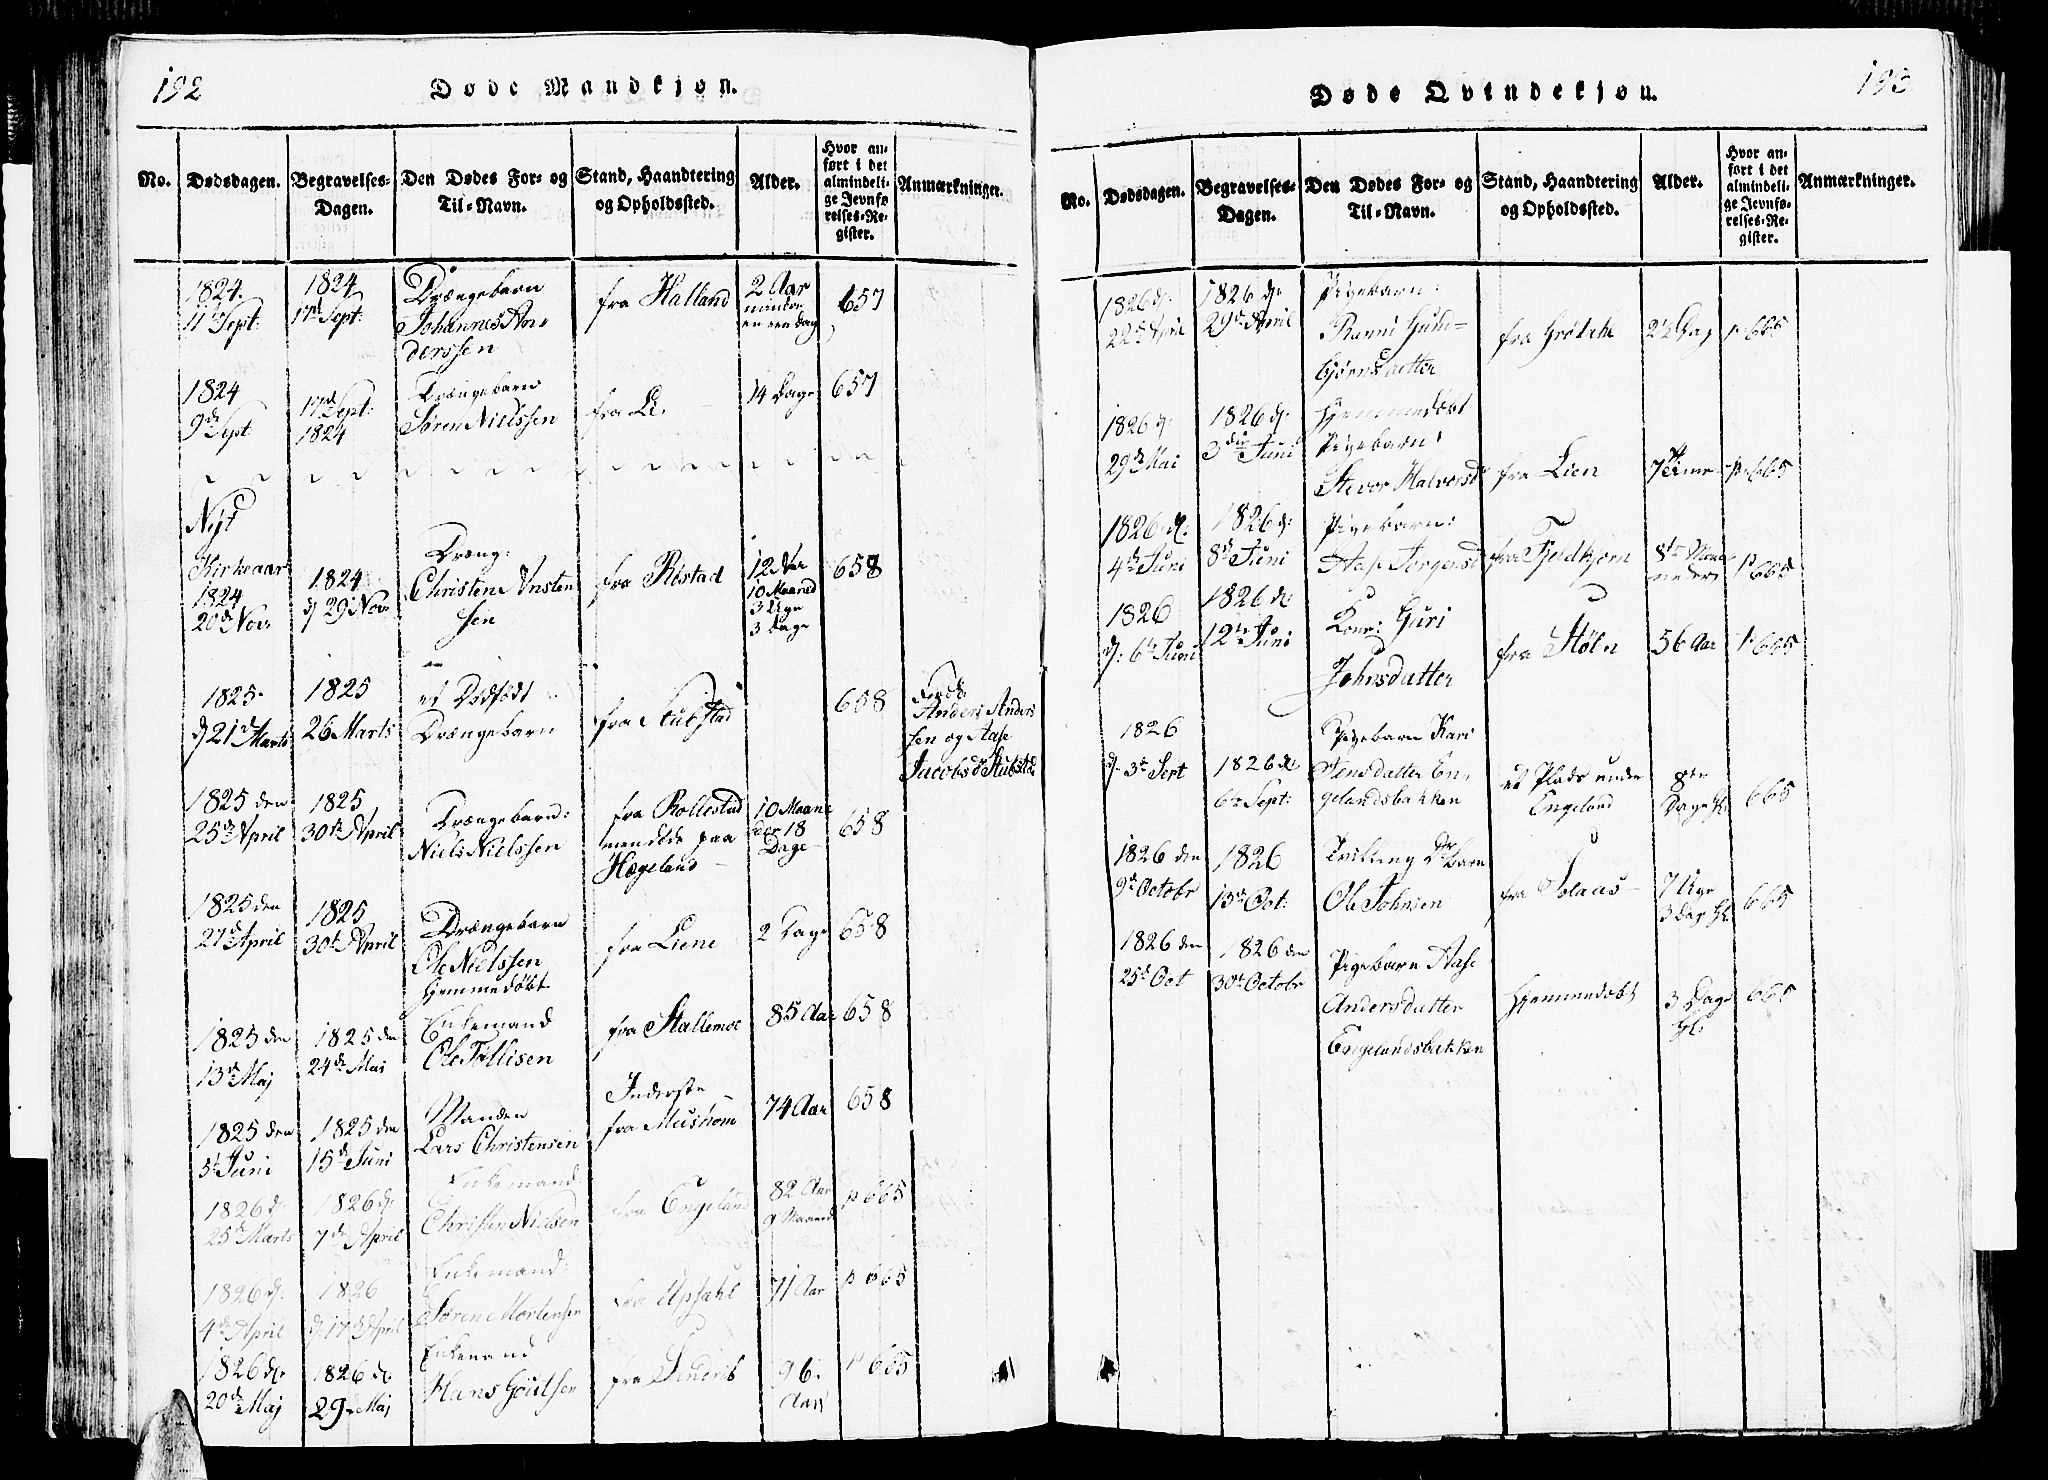 192
Døde Mandkjøn.
No.
Dødsdagen.
Begravelses-
Dagen.
Den Dødes For- og
Til-Navn.
Stand, Haandtering
og Opholdssted.
Alder.
Hvor an-
ført i det
almindeli-
ge Jevnfø
relses-Re-
gister.
Anmærkninger.
1824.
11te Sept:
1824
17de Sept:
Drængebarn
Johannes An-
derssen
fra Halland
2 Aar
mindre
en een dag
657
1824
9de Sept
17de Sept:
1824
Drængebarn
Søren Nielssen
fra Li.
14 Dage
657
Nyt
Kirkeaar
1824
20de Nov:
1824
d 29 Nov:
Dræng:
Christen
sen
fra Røstad
12 Aar
10 Maaned
3 Uge
3 Dage
658
1825
d 21de Marts
1825
26 Marts
et Dødfødt
Drængebarn
fra Stubstad
658
Anders Anders
sen og Aase
Jacobsd Stubsta
1825 den
25de April
1825
30te April
Drængebarn:
Niels Nielssen
fra Rollestad
men døde paa
Hægeland
10 Maane
der 18
Dage
658
1825 den
27de April
1825
30te April
Drængebarn
Ole Nielssen
hjemmedøbt
fra Liene
2 Dage
658
1825 den
13de Maj
1825 den
24de Mai
Enkemand
Ole Tellisen
fra Stallemoe
85 Aar
658
1825 den
5te Juni
1825 den
15de Juni
Manden
Lars Christensen
Inderste
fra Mushom
74 Aar
658
1826 d:
25de Marts
1826 d:
7de April
Enkemand
Christen Nielsen
fra Engeland
82 Aar
9 Maaned
p 665
1826 d:
4de April
1826
d 17de April
Enkemand:
Søren Mortensen
fra Upsahl
71 Aar
p 665
1826 d.
20de Maj
1826 d.
29 Maj
Enkemand
Hans
fra
96.
Aar
p 665
193
Døde Qvindekjøn.
No.
Dødsdagen.
Begravelses-
Dagen.
Den Dødes For- og
Til-Navn.
Stand, Haandtering
og Opholdssted.
Alder.
Hvor an-
ført i det
almindeli-
ge Jevnfø-
relses-Re-
gister.
Anmærkninger.
1826 d:
22de April
1826 d:
29de April
Pigebarn:
Ranni Gun-
bjørnsdatter
fra
p 665
1826 d:
29de Mai
1826 d.
3die Juni
Hjemmedøbt
Pigebarn:
Halvorsd
fra Lien
p. 665
1826 d.
4de Juni
1826 d:
8de Juni
Pigebarn:
Aase Jørgensd
fra Fjeldkjern
p 665
1826
d: 6te Juni
1826 d.
12te Juni
Kone: Guri
Johnsdatter
fra Støln
56 Aar
p. 665
1826
d. 3de Sept
1826 d.
6te Sept:
Pigebarn Kari
Jensdatter En-
gelandsbakken
et Plads under
Engeland
8te
Dage
665
1826 den
9de Octobr
1826
13de Oct:
Tvilling Dr barn
Ole Johnsen
fra Solaas
7 Uger
3 Dag Gl.
665
1826 den
25de Oct
1826 den
30te Octobr
Pigebarn Aase
Andersdatter
Engelandsbakken
Hjemmedøbt
3 Dage
Gl:
665